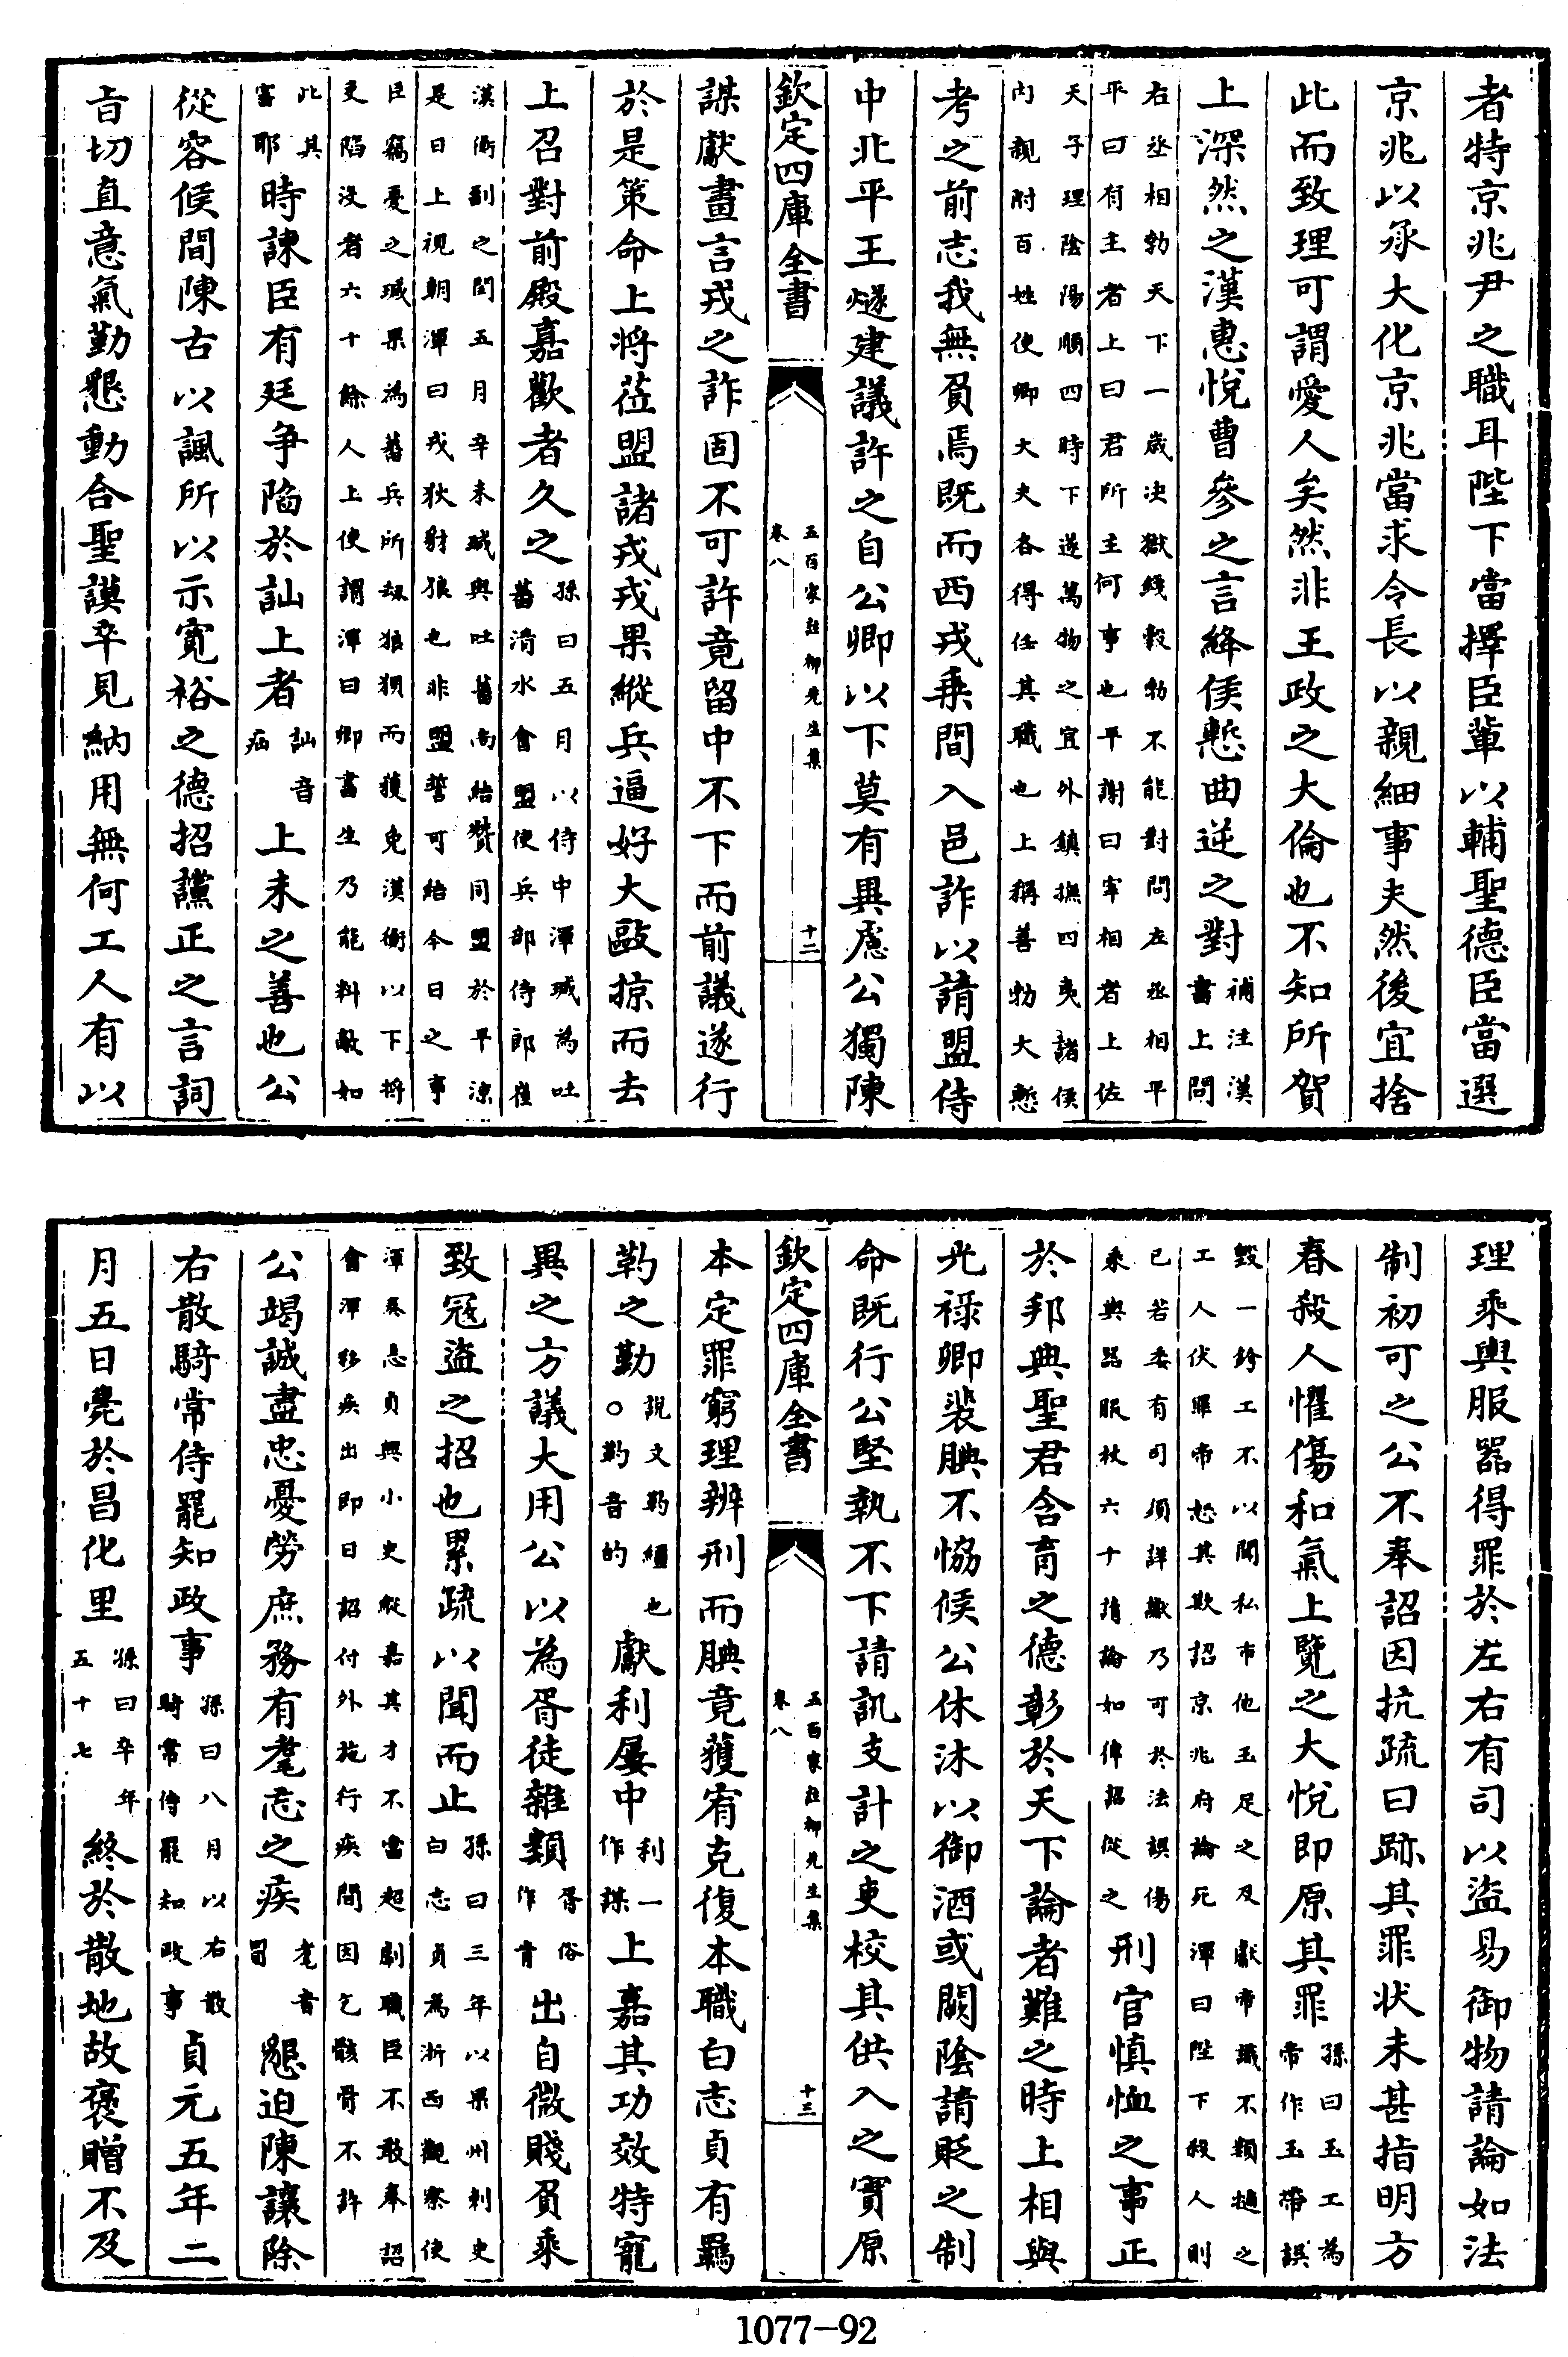 者特京兆尹之職耳陛下當擇臣輩以輔聖德臣當選
京兆以承大化京兆當求令長以親細事夫然後宜捨
此而致理可謂愛人矣然非王政之大倫也不知所賀
上深然之漢惠悅曹參之言絳侯慙曲逆之對補注漢書上問
右丞相勃天下一歲決獄錢穀勃不能對問左丞相平
平曰有主者上曰君所主何事也平謝曰宰相者上佐
天子理陰陽順四時下遂萬物之宜外鎮撫四夷諸侯
內親附百姓使卿大夫各得任其職也上稱善勃大慙
考之前志我無負焉既而西戎乗間入邑詐以請盟侍
中北平王燧建議許之自公卿以下莫有異慮公獨陳
欽定四庫全書
五百家註柳先生集
卷八
十二
謀獻畫言戎之詐固不可許竟留中不下而前議遂行
於是策命上將莅盟諸戎戎果縱兵逼好大敺掠而去
上召對前殿嘉歡者久之孫曰五月以侍中渾瑊為吐蕃淸水會盟使兵部侍郎崔
漢衡副之閏五月辛未瑊與吐蕃尚結贊同盟於平涼
是日上視朝渾曰戎狄豺狼也非盟誓可結今日之事
臣竊憂之瑊果為蕃兵所刼狼狽而獲免漢衡以下將
吏陷沒者六十餘人上使謂渾曰卿書生乃能料敵如
此其審耶時諫臣有廷争陷於訕上者訕音疝上未之善也公
從容侯間陳古以諷所以示寛裕之德招讜正之言詞
旨切直意氣勤懇動合聖謨卒見納用無何工人有以
理乘輿服器得罪於左右有司以盜易御物請論如法
制初可之公不奉詔因抗疏曰跡其罪状未甚指明方
春殺人懼傷和氣上覽之大悅即原其罪孫曰玉工為帝作玉帶誤
毀一銙工不以聞私市他玉足之及獻帝識不類擿之
工人伏罪帝怒其欺詔京兆府論死渾曰陛下殺人則
已若委有司須詳讞乃可於法誤傷
乘輿器服杖六十請論如律詔從之刑官慎恤之事正
於邦典聖君含育之德彰於天下論者難之時上相與
光祿卿裴腆不恊候公休沐以御酒或闕陰請貶之制
命既行公堅執不下請訊支計之吏校其供入之實原
欽定四庫全書
五百家註柳先生集
卷八
十三
本定罪窮理辨刑而腆竟獲宥克復本職白志貞有羈
靮之勤說文靮繮也○靮音的獻利屢中利一作謀上嘉其功效特寵
異之方議大用公以為胥徒雜類胥俗作肯出自微賤負乘
致冦盜之招也累疏以聞而止孫曰三年以果州刺史白志貞為浙西觀察使
渾奏志貞興小史縱嘉其才不當超劇職臣不敢奉詔
會渾移疾出即日詔付外施行疾間因乞骸骨不許
公竭誠盡忠憂勞庶務有耄忘之疾懇迫陳讓除
右散騎常侍罷知政事孫曰八月以右散騎常侍罷知政事貞元五年二
月五日薨於昌化里孫曰卒年五十七終於散地故褒贈不及
1077-92